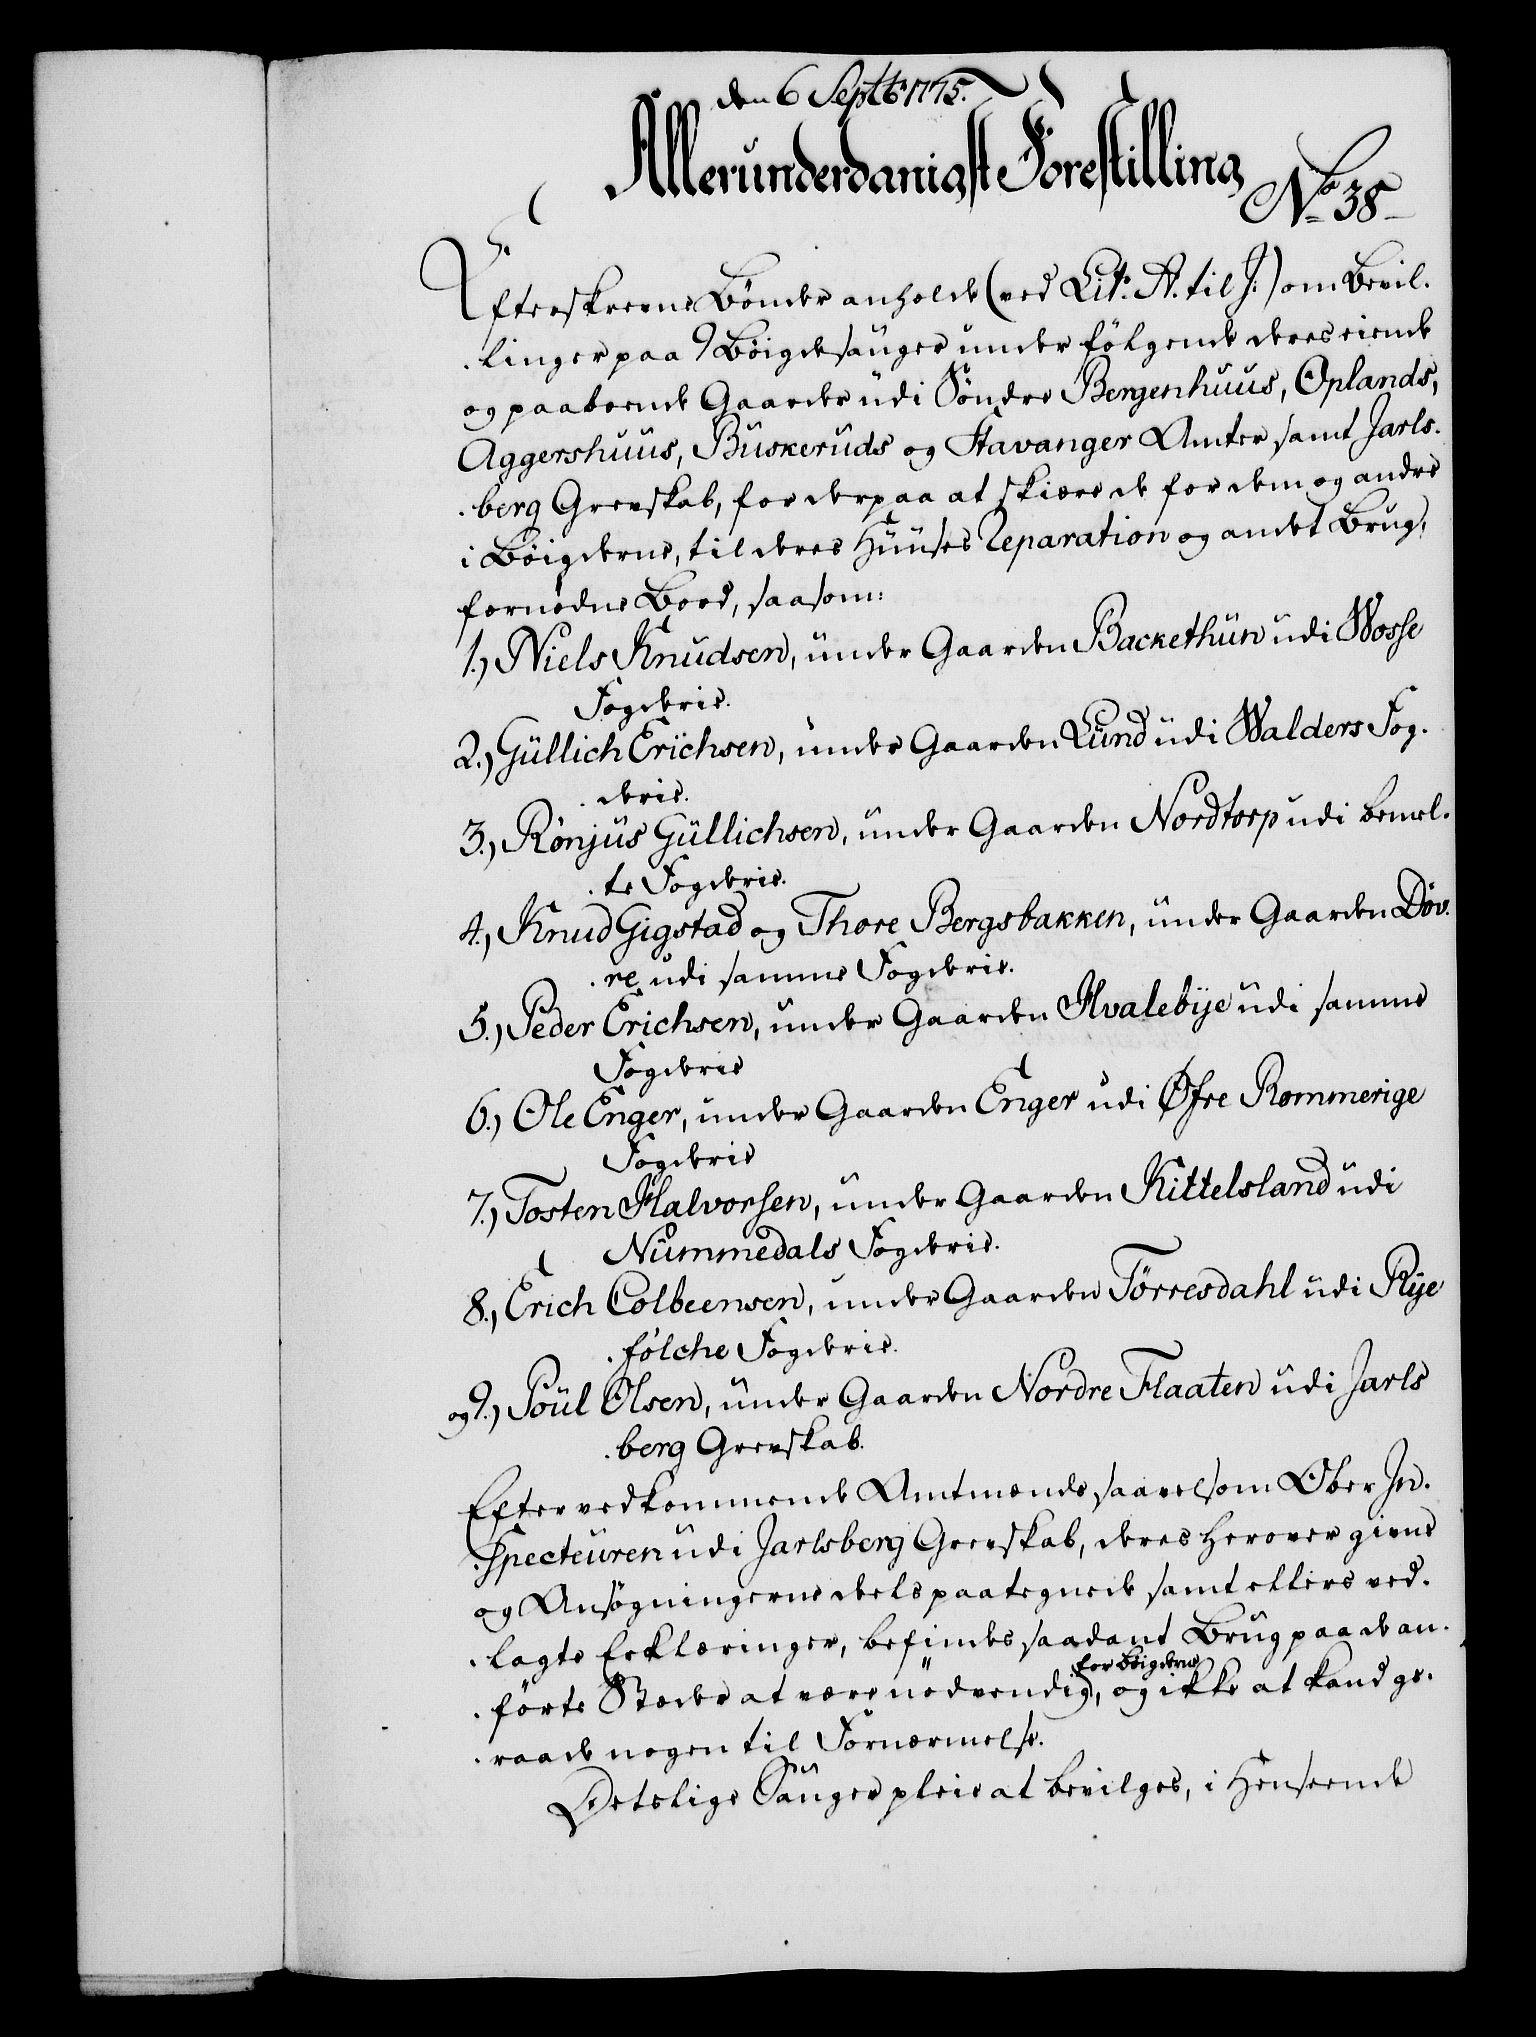 den 6 Septbr 1775.
Allerunderdanigst Forestilling
No 38
Efterskrevne Bönder anholde (ved Litr. A. til J.) om Bevil-
linger paa 9 Böigdesauger under fölgende deres eiende
og paaboende Gaarder udi Söndre Bergenhuus, Oplands,
Aggershuus, Buskeruds og Stavanger Amter samt Jarls-
berg Grevskab, for derpaa at skiære de for dem og andre
i Böigderne, til deres Huuses Reparation og andet Brug,
fornödne Bord, saasom:
1.) Niels Knudsen, under Gaarden Backethun udi Wosse
Fogderie.
2.) Güllich Erichsen, under Gaarden Lund udi Walders Fog-
derie.
3.) Rönjus Güllichsen, under Gaarden Nordtorp udi bemel-
te Fogderie.
4.) Knud Gigstad og Thore Bergsbakken, under Gaarden Döv-
re udi samme Fogderie.
5.) Peder Erichsen, under Gaarden Hvalebÿe udi samme
Fogderie
6.) Ole Enger, under Gaarden Enger udi Øfre Rommerige
Fogderie
7.) Tosten Halvorsen, under Gaarden Kittelsland udi
Nummedals Fogderie.
8.) Erich Colbeensen, under Gaarden Törresdahl udi Rÿe
fölche Fogderie.
og 9.) Poul Olsen, under Gaarden Nordre Flaaten udi Jarls
berg Grevskab.
Efter vedkommende Amtmænds saavelsom Ober In-
specteuren udi Jarlsberg Grevskab, deres herover givne
og Ansögningerne deels paategnede samt ellers ved-
lagte Erklæringer, befindes saadant Brug paa de an-
förte Stæder at være nödvendig for böigderne, og ikke at kand ge-
raade nogen til Fornærmelse.
Detslige Sauger pleie at bevilges, i Henseende